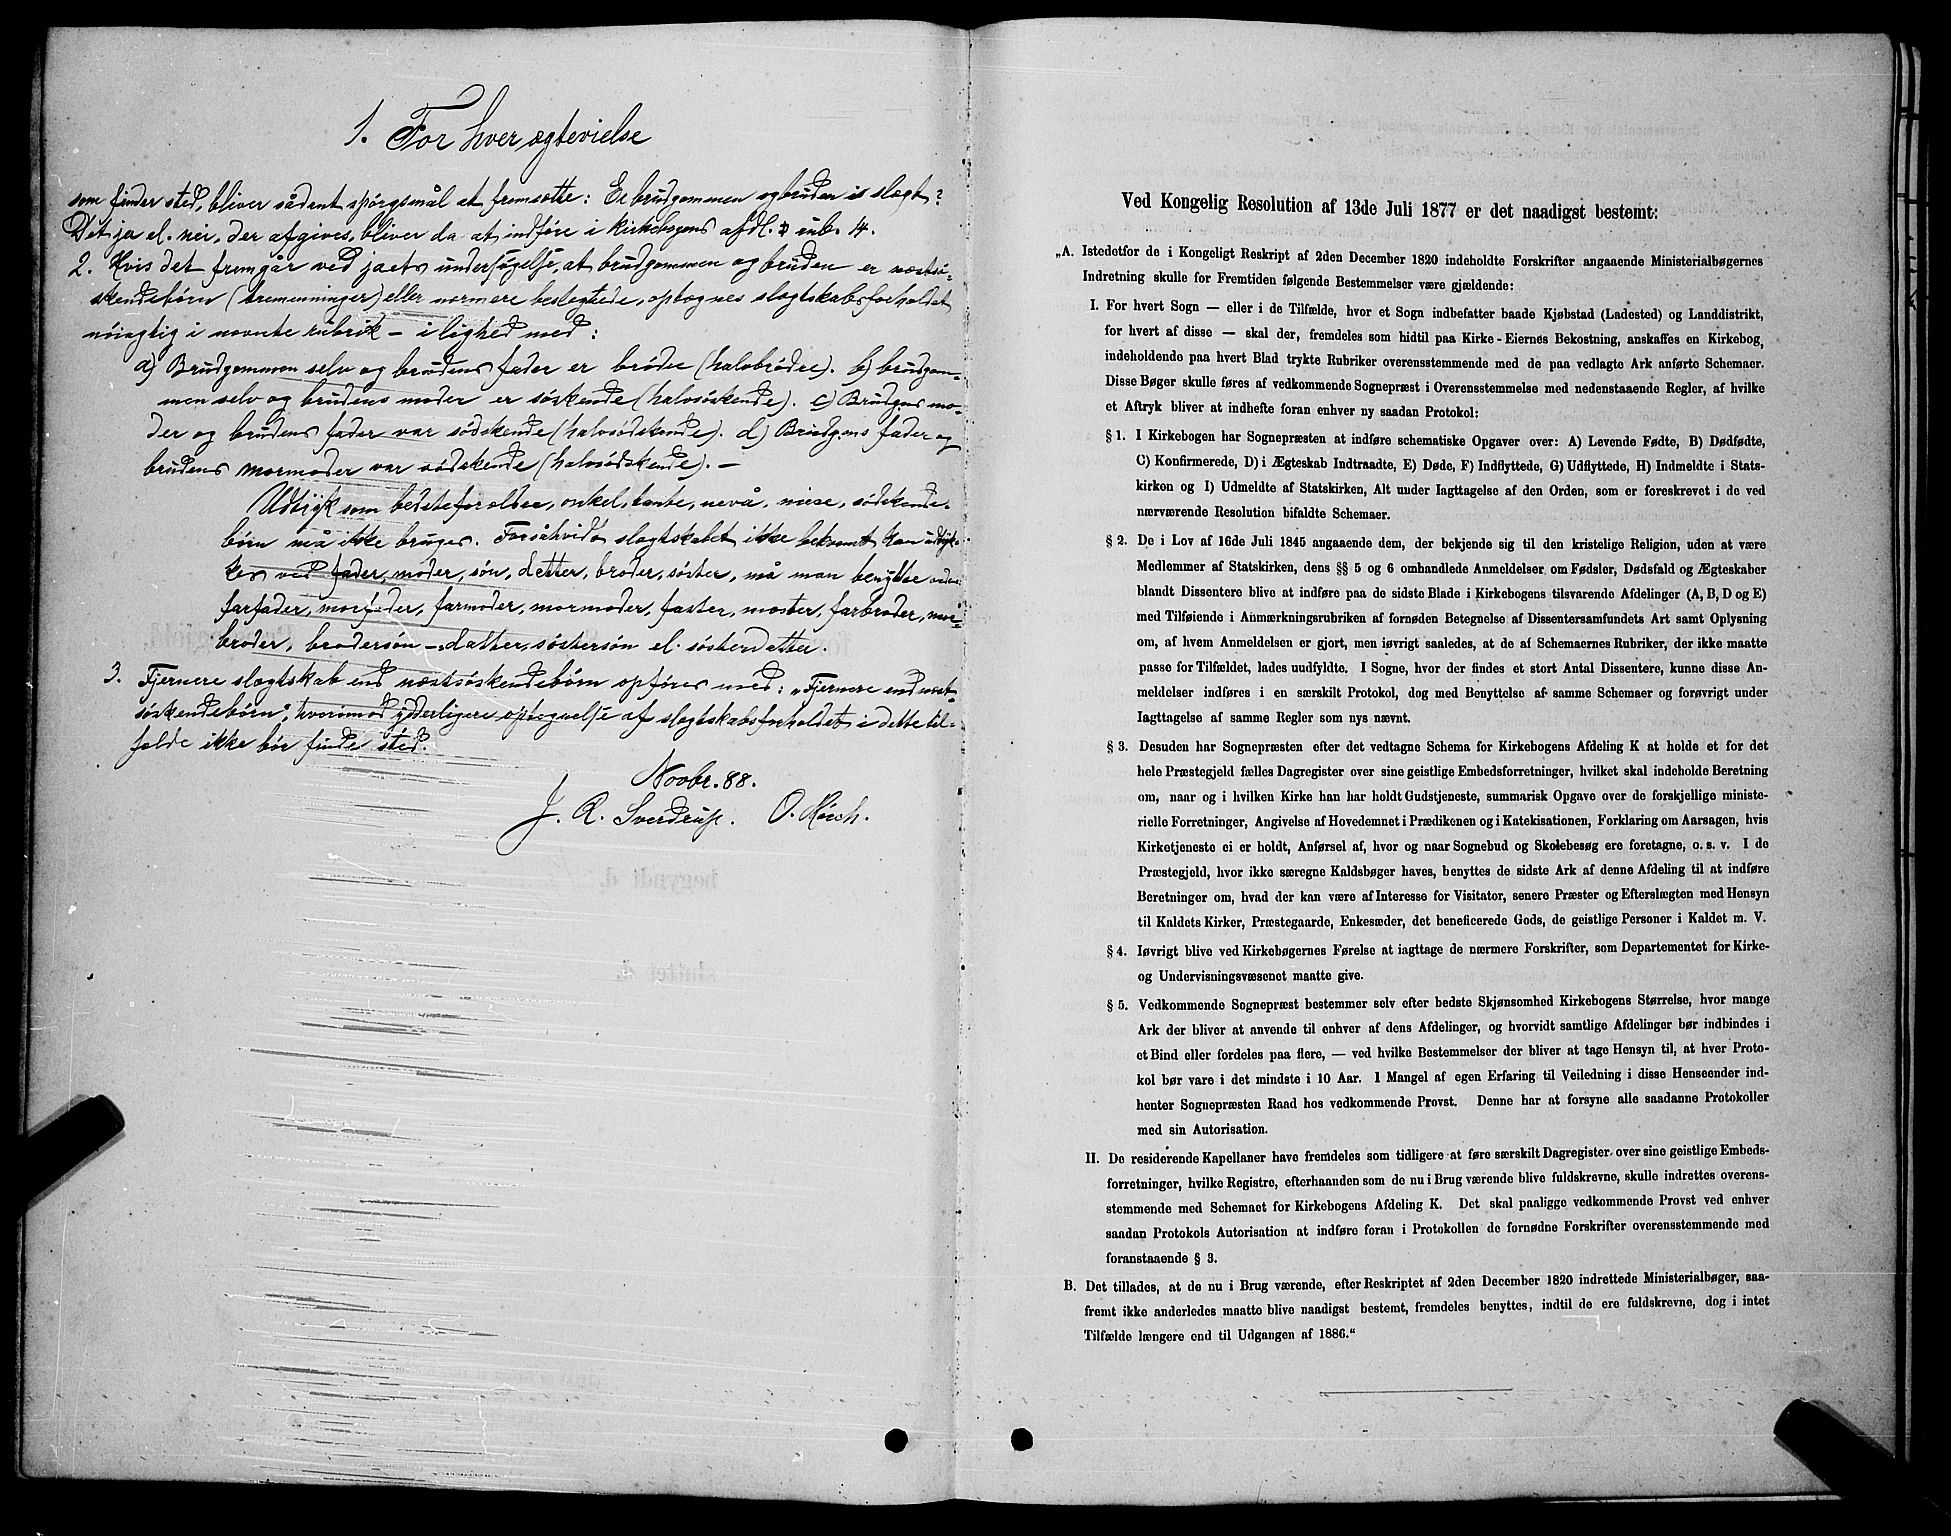 1. For hver ægtevielse
som finder sted, bliver sådant spörgsmål at fremsætte: Er brudgommen og bruden i slægt?
Det ja el. nei, der afgives, bliver da at indföre i kirkebogens afdl. D rub. 4.
2. Hvis det fremgår ved jaets undersögelse, at brudgommen og bruden er næstsö-
skendebörn (tremenninger) eller nærmere beslægtede, optegnes slægtskabsforholdet
nöiagtig i nævnte rubrik – i lighed med:
a) Brudgommen selv og brudens fader er brödre (halvbrödre). b) brudgom-
men selv og brudens moder er söskende (halvsöskende). c) Brudgms mo-
der og brudens fader var södskende (halvsödskende). d) Brudgms fader og
brudens mormoder var södskende (halvsödskende). –
Udtryk som bedsteforældre, onkel, tante, nevö, niese, södskende-
börn må ikke bruges. Forsåvidt slægtskabet ikke bekvemt kan udtryk-
kes ved fader, moder, sön, datter, broder, söster, må man benytte ordene:
farfader, morfader, farmoder, mormoder, faster, moster, farbroder, mor-
broder, brodersön – datter, söstersön el. sösterdatter.
3. Fjernere slægtskab end næstsöskendebörn opföres med: „Fjernere end næst-
söskendebörn", hvorimod yderligere optegnelse af slægtskabsforholdet i dette til-
fælde ikke bör finde sted.
Novbr. 88.
J. R. Sverdrup. O. Mörch.
begyndt d.
slutter d.
Ved Kongelig Resolution af 13de Juli 1877 er det naadigst bestemt:
„A. Istedetfor de i Kongeligt Reskript af 2den December 1820 indeholdte Forskrifter angaaende Ministerialbøgernes
Indretning skulle for Fremtiden følgende Bestemmelser være gjældende:
I. For hvert Sogn — eller i de Tilfælde, hvor et Sogn indbefatter baade Kjøbstad (Ladested) og Landdistrikt,
for hvert af disse — skal der, fremdeles som hidtil paa Kirke-Eiernes Bekostning, anskaffes en Kirkebog,
indeholdende paa hvert Blad trykte Rubriker overensstemmende med de paa vedlagte Ark anførte Schemaer.
Disse Bøger skulle føres af vedkommende Sognepræst i Overensstemmelse med nedenstaaende Regler, af hvilke
et Aftryk bliver at indhefte foran enhver ny saadan Protokol:
§ 1. I Kirkebogen har Sognepræsten at indføre schematiske Opgaver over: A) Levende Fødte, B) Dødfødte,
C) Konfirmerede, D) i Ægteskab Indtraadte, E) Døde, F) Indflyttede, G) Udflyttede, H) Indmeldte i Stats-
kirken og I) Udmeldte af Statskirken, Alt under Iagttagelse af den Orden, som er foreskrevet i de ved
nærværende Resolution bifaldte Schemaer.
§ 2. De i Lov af 16de Juli 1845 angaaende dem, der bekjende sig til den kristelige Religion, uden at være
Medlemmer af Statskirken, dens §§ 5 og 6 omhandlede Anmeldelser om Fødsler, Dødsfald og Ægteskaber
blandt Dissentere blive at indføre paa de sidste Blade i Kirkebogens tilsvarende Afdelinger (A, B, D og E)
med Tilføiende i Anmærkningsrubriken af fornøden Betegnelse af Dissentersamfundets Art samt Oplysning
om, af hvem Anmeldelsen er gjort, men iøvrigt saaledes, at de af Schemaernes Rubriker, der ikke maatte
passe for Tilfældet, lades uudfyldte. I Sogne, hvor der findes et stort Antal Dissentere, kunne disse An-
meldelser indføres i en særskilt Protokol, dog med Benyttelse af samme Schemaer og forøvrigt under
Iagttagelse af samme Regler som nys nævnt.
§ 3. Desuden har Sognepræsten efter det vedtagne Schema for Kirkebogens Afdeling K at holde et for det
hele Præstegjeld fælles Dagregister over sine geistlige Embedsforretninger, hvilket skal indeholde Beretning
om, naar og i hvilken Kirke han har holdt Gudstjeneste, summarisk Opgave over de forskjellige ministe-
rielle Forretninger, Angivelse af Hovedemnet i Prædikenen og i Katekisationen, Forklaring om Aarsagen, hvis
Kirketjeneste ei er holdt, Anførsel af, hvor og naar Sognebud og Skolebesøg ere foretagne, o. s. v. I de
Præstegjeld, hvor ikke særegne Kaldsbøger haves, benyttes de sidste Ark af denne Afdeling til at indføre
Beretninger om, hvad der kan være af Interesse for Visitator, senere Præster og Efterslægten med Hensyn
til Kaldets Kirker, Præstegaarde, Enkesæder, det beneficerede Gods, de geistlige Personer i Kaldet m. V.
§ 4. Iøvrigt blive ved Kirkebøgernes Førelse at iagttage de nærmere Forskrifter, som Departementet for Kirke-
og Undervisningsvæsenet maatte give.
§ 5. Vedkommende Sognepræst bestemmer selv efter bedste Skjønsomhed Kirkebogens Størrelse, hvor mange
Ark der bliver at anvende til enhver af dens Afdelinger, og hvorvidt samtlige Afdelinger bør indbindes i
et Bind eller fordeles paa flere, — ved hvilke Bestemmelser der bliver at tage Hensyn til, at hver Proto-
kol bør vare i det mindste i 10 Aar. I Mangel af egen Erfaring til Veiledning i disse Henseender ind-
henter Sognepræsten Raad hos vedkommende Provst. Denne har at forsyne alle saadanne Protokoller
med sin Autorisation.
II. De residerende Kapellaner have fremdeles som tidligere at føre særskilt Dagregister over sine geistlige Embeds-
forretninger, hvilke Registre, efterhaanden som de nu i Brug værende blive fuldskrevne, skulle indrettes overens-
stemmende med Schemaet for Kirkebogens Afdeling K. Det skal paaligge vedkommende Provst ved enhver
saadan Protokols Autorisation at indføre foran i Protokollen de fornødne Forskrifter overensstemmende med
foranstaaende § 3.
B. Det tillades, at de nu i Brug værende, efter Reskriptet af 2den December 1820 indrettede Ministerialbøger, saa-
fremt ikke anderledes maatte blive naadigst bestemt, fremdeles benyttes, indtil de ere fuldskrevne, dog i intet
Tilfælde længere end til Udgangen af 1886.“